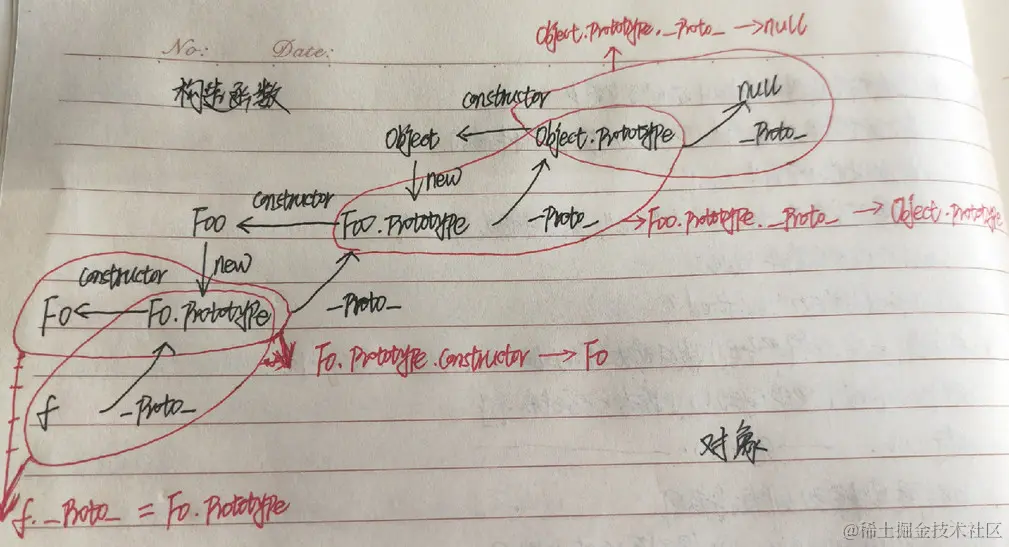 Object.Prototype._Proto_ → null
No: Date:
构造函数
constructor
null
Object ← Object.Prototype
_Proto_
new
constructor
Foo ← Foo.Prototype
_Proto_ → Foo.Prototype._Proto_ → Object.Prototype
new
constructor
Fo ← Fo.Prototype
_Proto_
Fo.Prototype.constructor → Fo
f
_Proto_
对象
f._Proto_ = Fo.Prototype
@稀土掘金技术社区